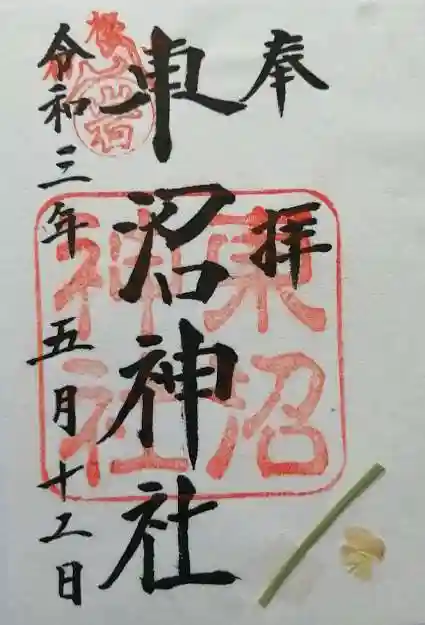 奉拝
東沼神社
令和三年五月十二日
東沼神社